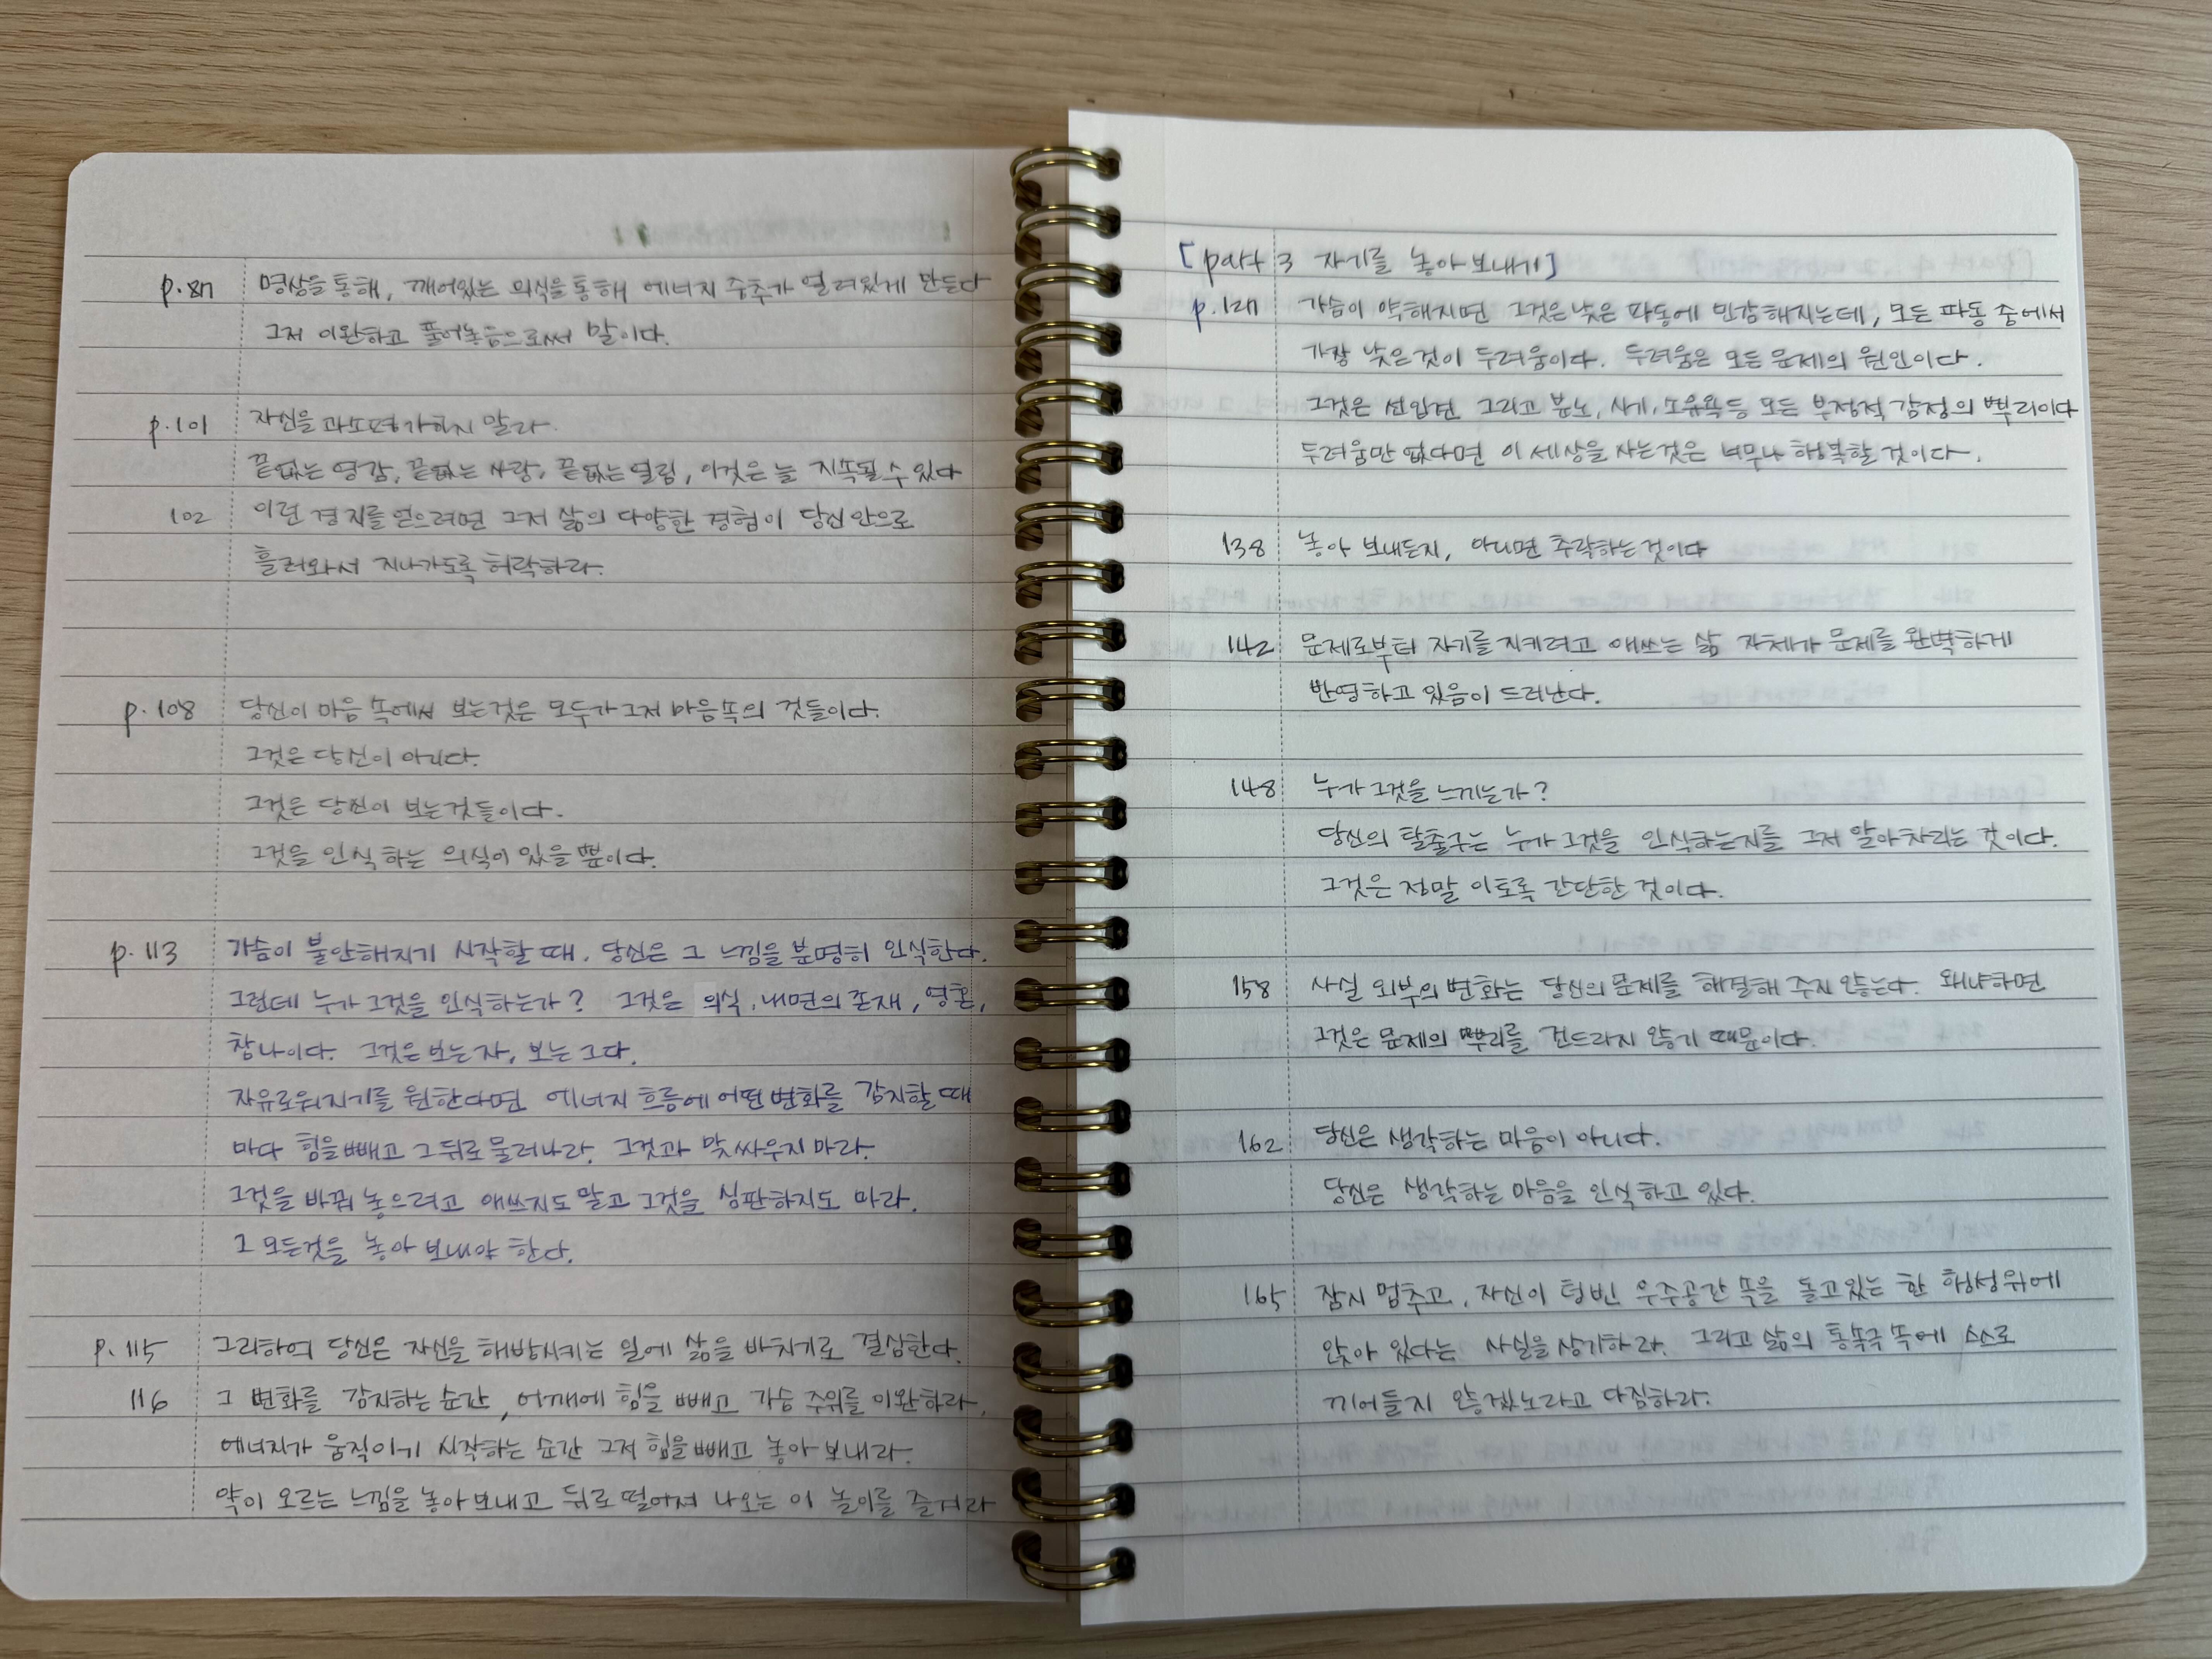 p.87 명상을 통해, 깨어있는 의식을 통해 에너지 중추가 열려있게 만든다
그저 이완하고 풀어놓음으로써 말이다.
p.101 자신을 과소평가하지 말라.
끝없는 영감, 끝없는 사랑, 끝없는 열림, 이것은 늘 지속될 수 있다
102 이런 경지를 얻으려면 그저 삶의 다양한 경험이 당신 안으로
흘러와서 지나가도록 허락하라.
p.108 당신이 마음 속에서 보는것은 모두가 그저 마음속의 것들이다.
그것은 당신이 아니다.
그것은 당신이 보는것들이다.
그것을 인식하는 의식이 있을 뿐이다.
p.113 가슴이 불안해지기 시작할 때, 당신은 그 느낌을 분명히 인식한다.
그런데 누가 그것을 인식하는가? 그것은 의식, 내면의 존재, 영혼,
참나이다. 그것은 보는 자, 보는 그다.
자유로워지기를 원한다면 에너지 흐름에 어떤 변화를 감지할 때
마다 힘을 빼고 그 뒤로 물러나라. 그것과 맞싸우지 마라.
그것을 바꿔 놓으려고 애쓰지도 말고 그것을 심판하지도 마라.
그 모든것을 놓아 보내야 한다.
p.115 그리하여 당신은 자신을 해방시키는 일에 삶을 바치기로 결심한다.
116 그 변화를 감지하는 순간, 어깨에 힘을 빼고 가슴 주위를 이완하라.
에너지가 움직이기 시작하는 순간 그저 힘을 빼고 놓아 보내라.
약이 오르는 느낌을 놓아 보내고 뒤로 떨어져 나오는 이 놀이를 즐겨라
[part 3 자기를 놓아 보내기]
p.127 가슴이 약해지면 그것은 낮은 파동에 민감해지는데, 모든 파동 중에서
가장 낮은 것이 두려움이다. 두려움은 모든 문제의 원인이다.
그것은 선입견 그리고 분노, 시기, 소유욕 등 모든 부정적 감정의 뿌리이다
두려움만 없다면 이 세상을 사는것은 너무나 행복할 것이다.
138 놓아 보내든지, 아니면 추락하는 것이다
142 문제로부터 자기를 지키려고 애쓰는 삶 자체가 문제를 완벽하게
반영하고 있음이 드러난다.
148 누가 그것을 느끼는가?
당신의 탈출구는 누가 그것을 인식하는지를 그저 알아차리는 것이다.
그것은 정말 이토록 간단한 것이다.
158 사실 외부의 변화는 당신의 문제를 해결해 주지 않는다. 왜냐하면
그것은 문제의 뿌리를 건드리지 않기 때문이다.
162 당신은 생각하는 마음이 아니다.
당신은 생각하는 마음을 인식하고 있다.
165 잠시 멈추고, 자신이 텅빈 우주공간 속을 돌고있는 한 행성위에
앉아 있다는 사실을 상기하라. 그리고 삶의 통속극 속에 스스로
끼어들지 않겠노라고 다짐하라.